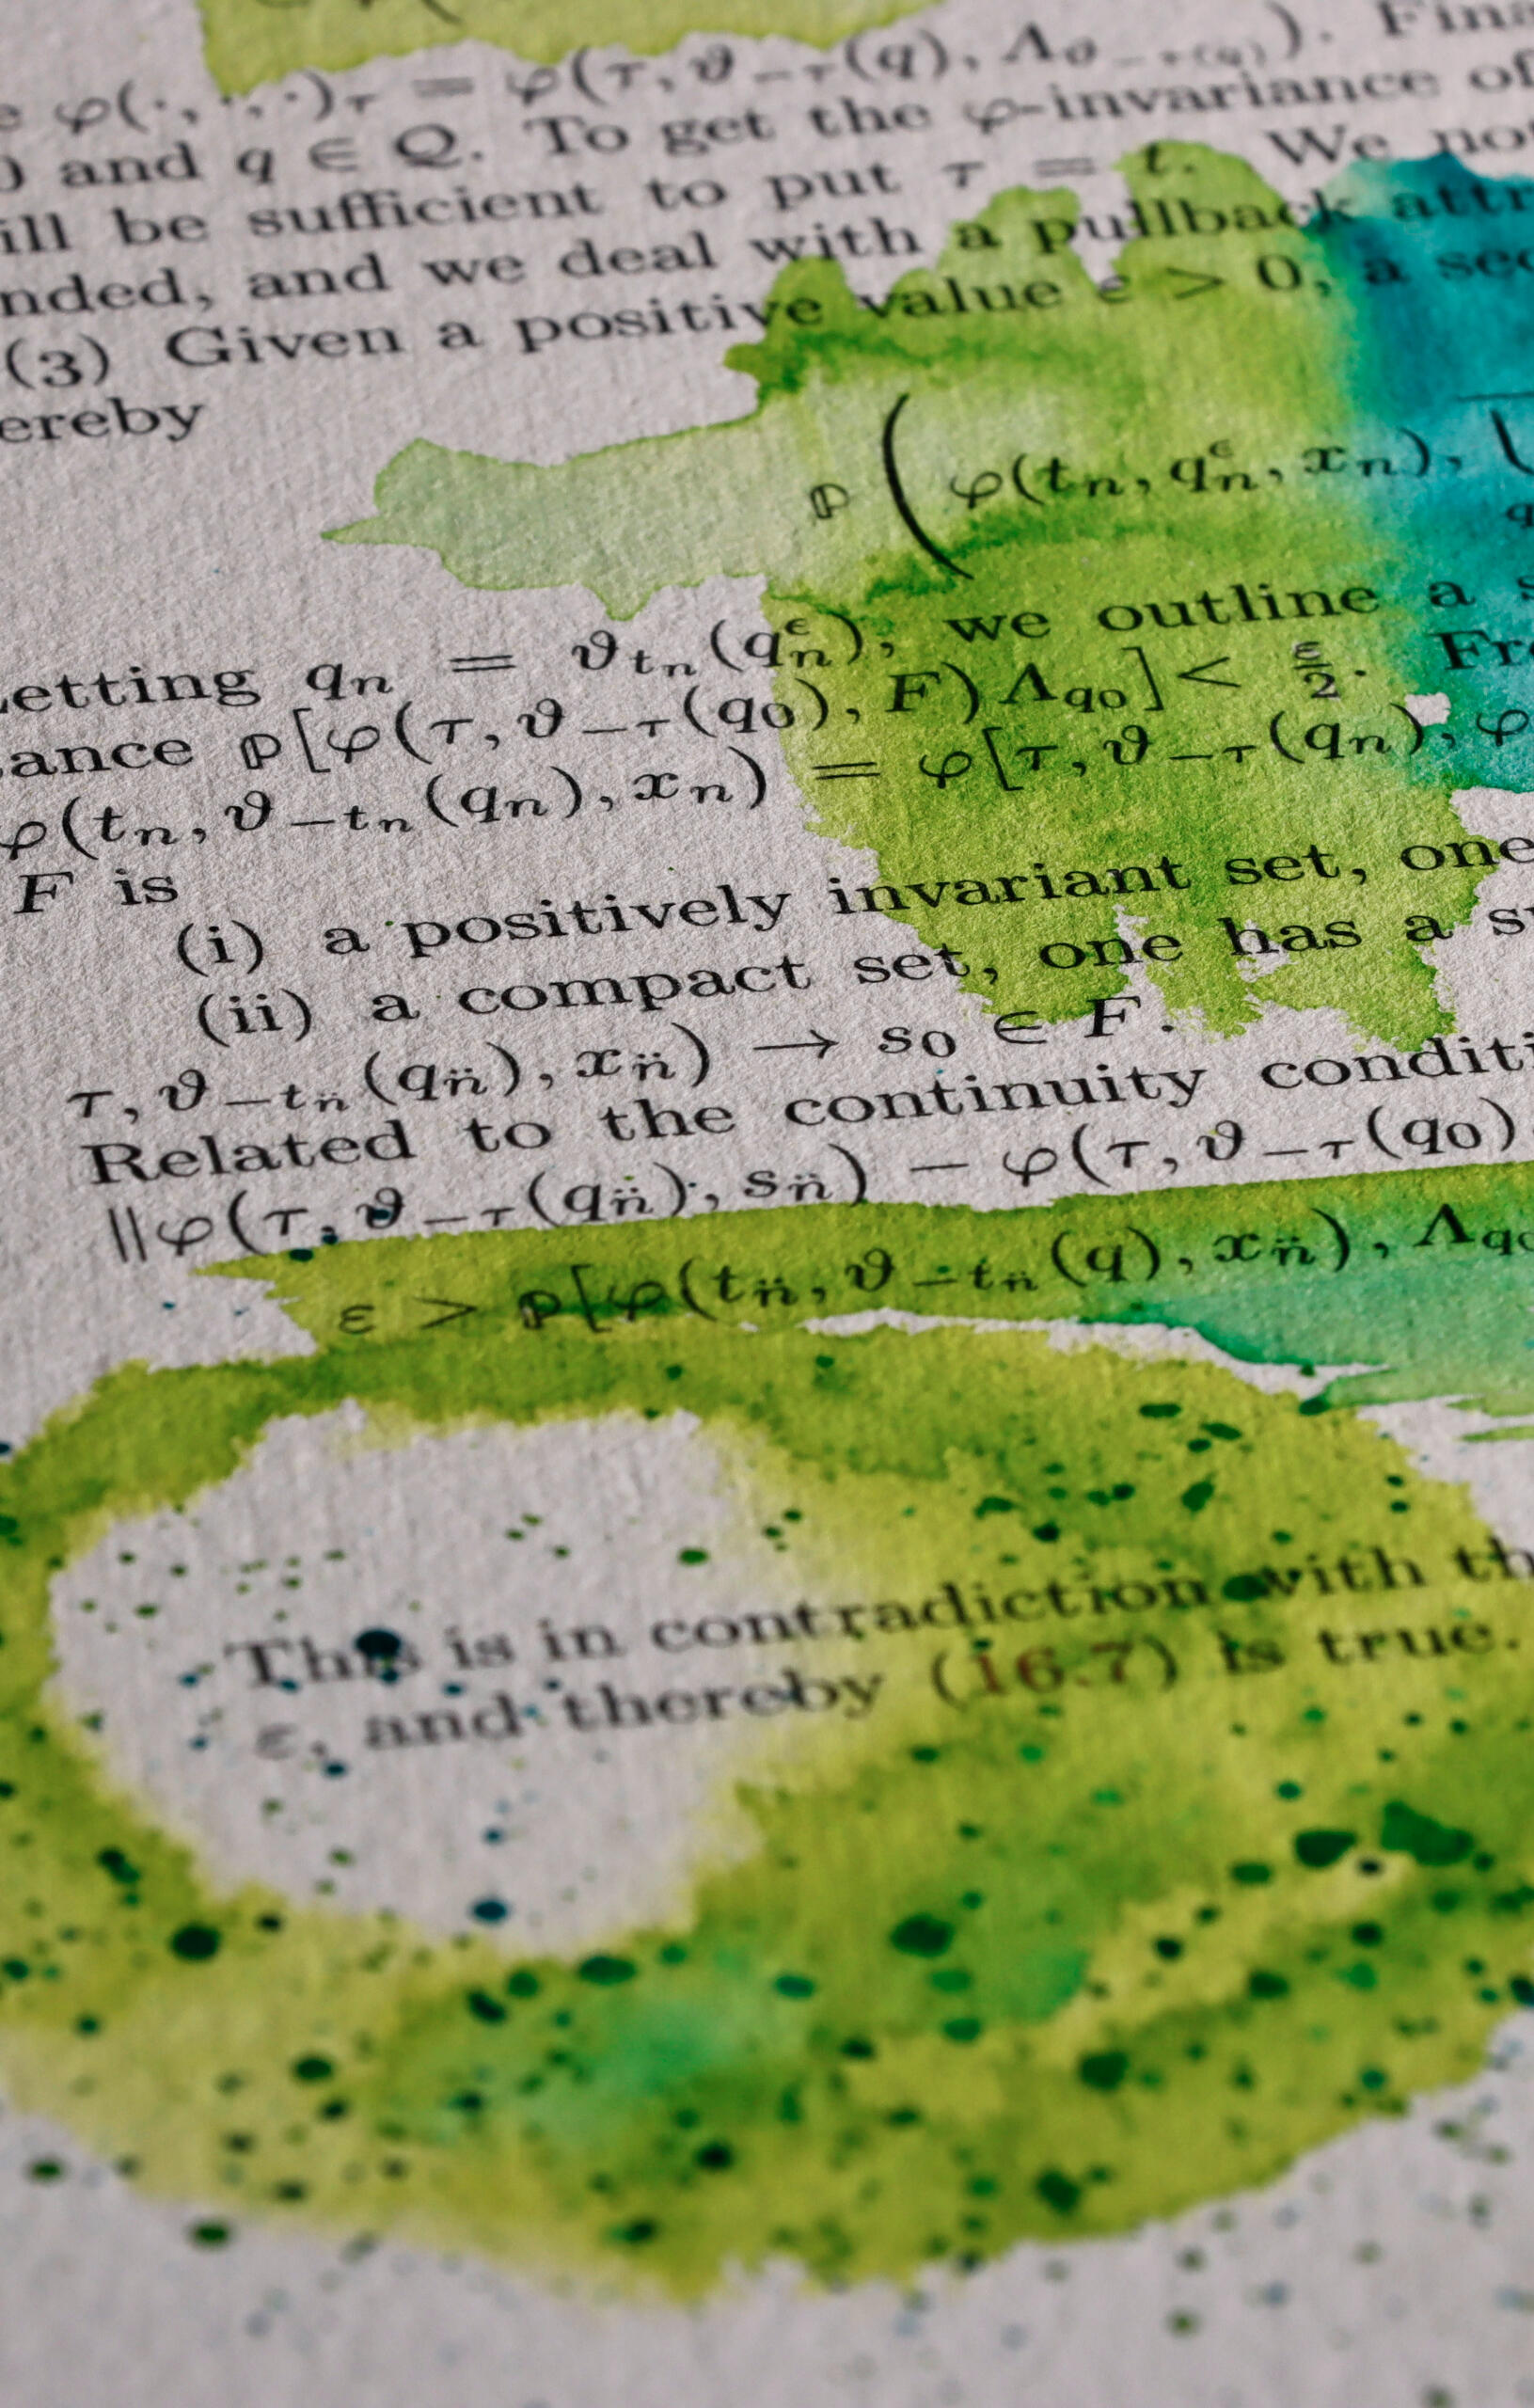 φ(·, ·, ·)τ = φ(τ, ϑ₋τ(q), Λϑ₋τ(q)). Fina
) and q ∈ Q. To get the φ-invariance of
ill be sufficient to put τ = t. We not
nded, and we deal with a pullback attr
(3) Given a positive value ϵ > 0, a sec
ereby
ℙ ( φ(tₙ, qₙ^ϵ, xₙ),
etting qₙ = ϑ_tₙ(qₙ^ϵ), we outline a s
tance ℙ[φ(τ, ϑ₋τ(q₀), F) Λ_q₀] < ε/2. Fr
φ(tₙ, ϑ₋tₙ(qₙ), xₙ) = φ[τ, ϑ₋τ(qₙ), φ
F is
(i) a positively invariant set, one
(ii) a compact set, one has a su
τ, ϑ₋t_n̈(q_n̈), x_n̈) → s₀ ∈ F.
Related to the continuity conditi
||φ(τ, ϑ₋τ(q_n̈), s_n̈) − φ(τ, ϑ₋τ(q₀)
ε > ℙ[φ(t_n̈, ϑ₋t_n̈(q), x_n̈), Λ_q₀
This is in contradiction with th
ε, and thereby (16.7) is true.